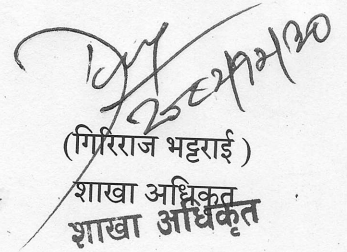 (गिरिराज भट्टराई )
शाखा अधिकृत
शाखा अधिकृत